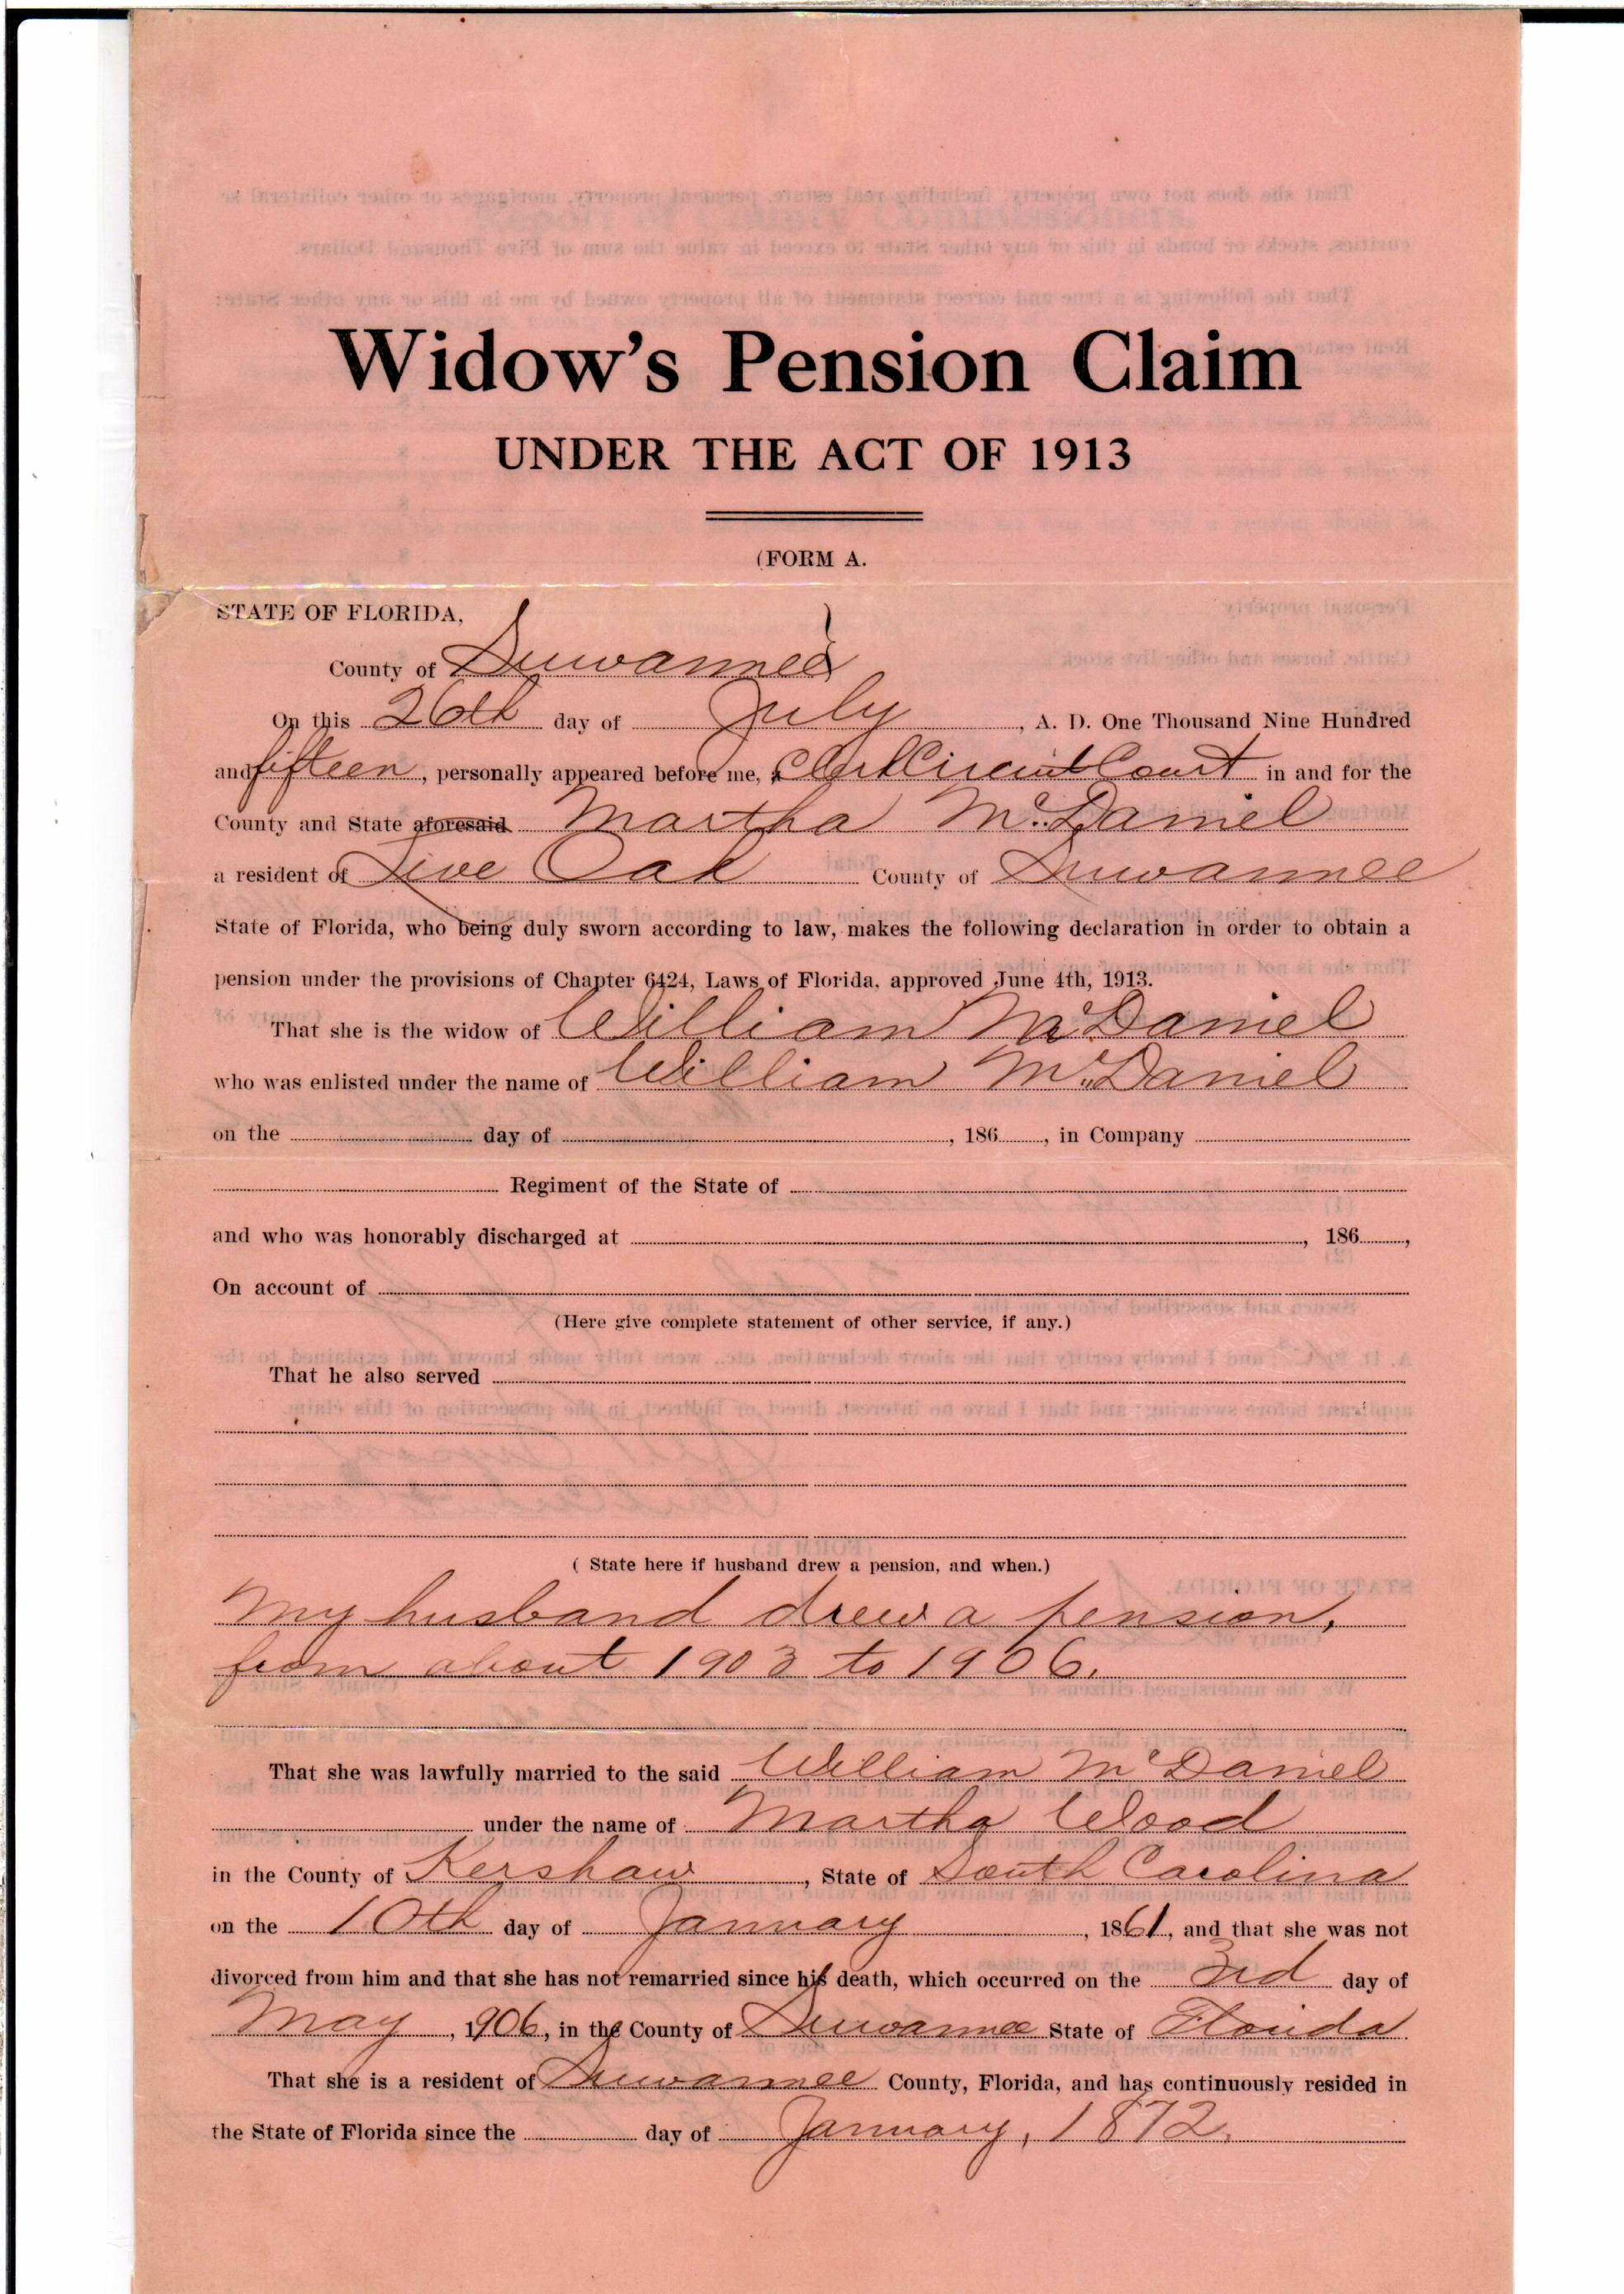 Widow's Pension Claim
UNDER THE ACT OF 1913
(FORM A.
STATE OF FLORIDA,
County of Suwannee
On this 26th day of July, A. D. One Thousand Nine Hundred
and fifteen, personally appeared before me, Clerk Circuit Court in and for the
County and State aforesaid Martha McDaniel
a resident of Live Oak County of Suwannee
State of Florida, who being duly sworn according to law, makes the following declaration in order to obtain a
pension under the provisions of Chapter 6424, Laws of Florida, approved June 4th, 1913.
That she is the widow of William McDaniel
who was enlisted under the name of William McDaniel
on the day of , 186 , in Company
Regiment of the State of
and who was honorably discharged at , 186 ,
On account of
(Here give complete statement of other service, if any.)
That he also served
( State here if husband drew a pension, and when.)
My husband drew a pension,
from about 1903 to 1906.
That she was lawfully married to the said William McDaniel
under the name of Martha Wood
in the County of Kershaw, State of South Carolina
on the 10th day of January, 1861, and that she was not
divorced from him and that she has not remarried since his death, which occurred on the 3rd day of
May, 1906, in the County of Suwannee State of Florida.
That she is a resident of Suwannee County, Florida, and has continuously resided in
the State of Florida since the day of January, 1872.